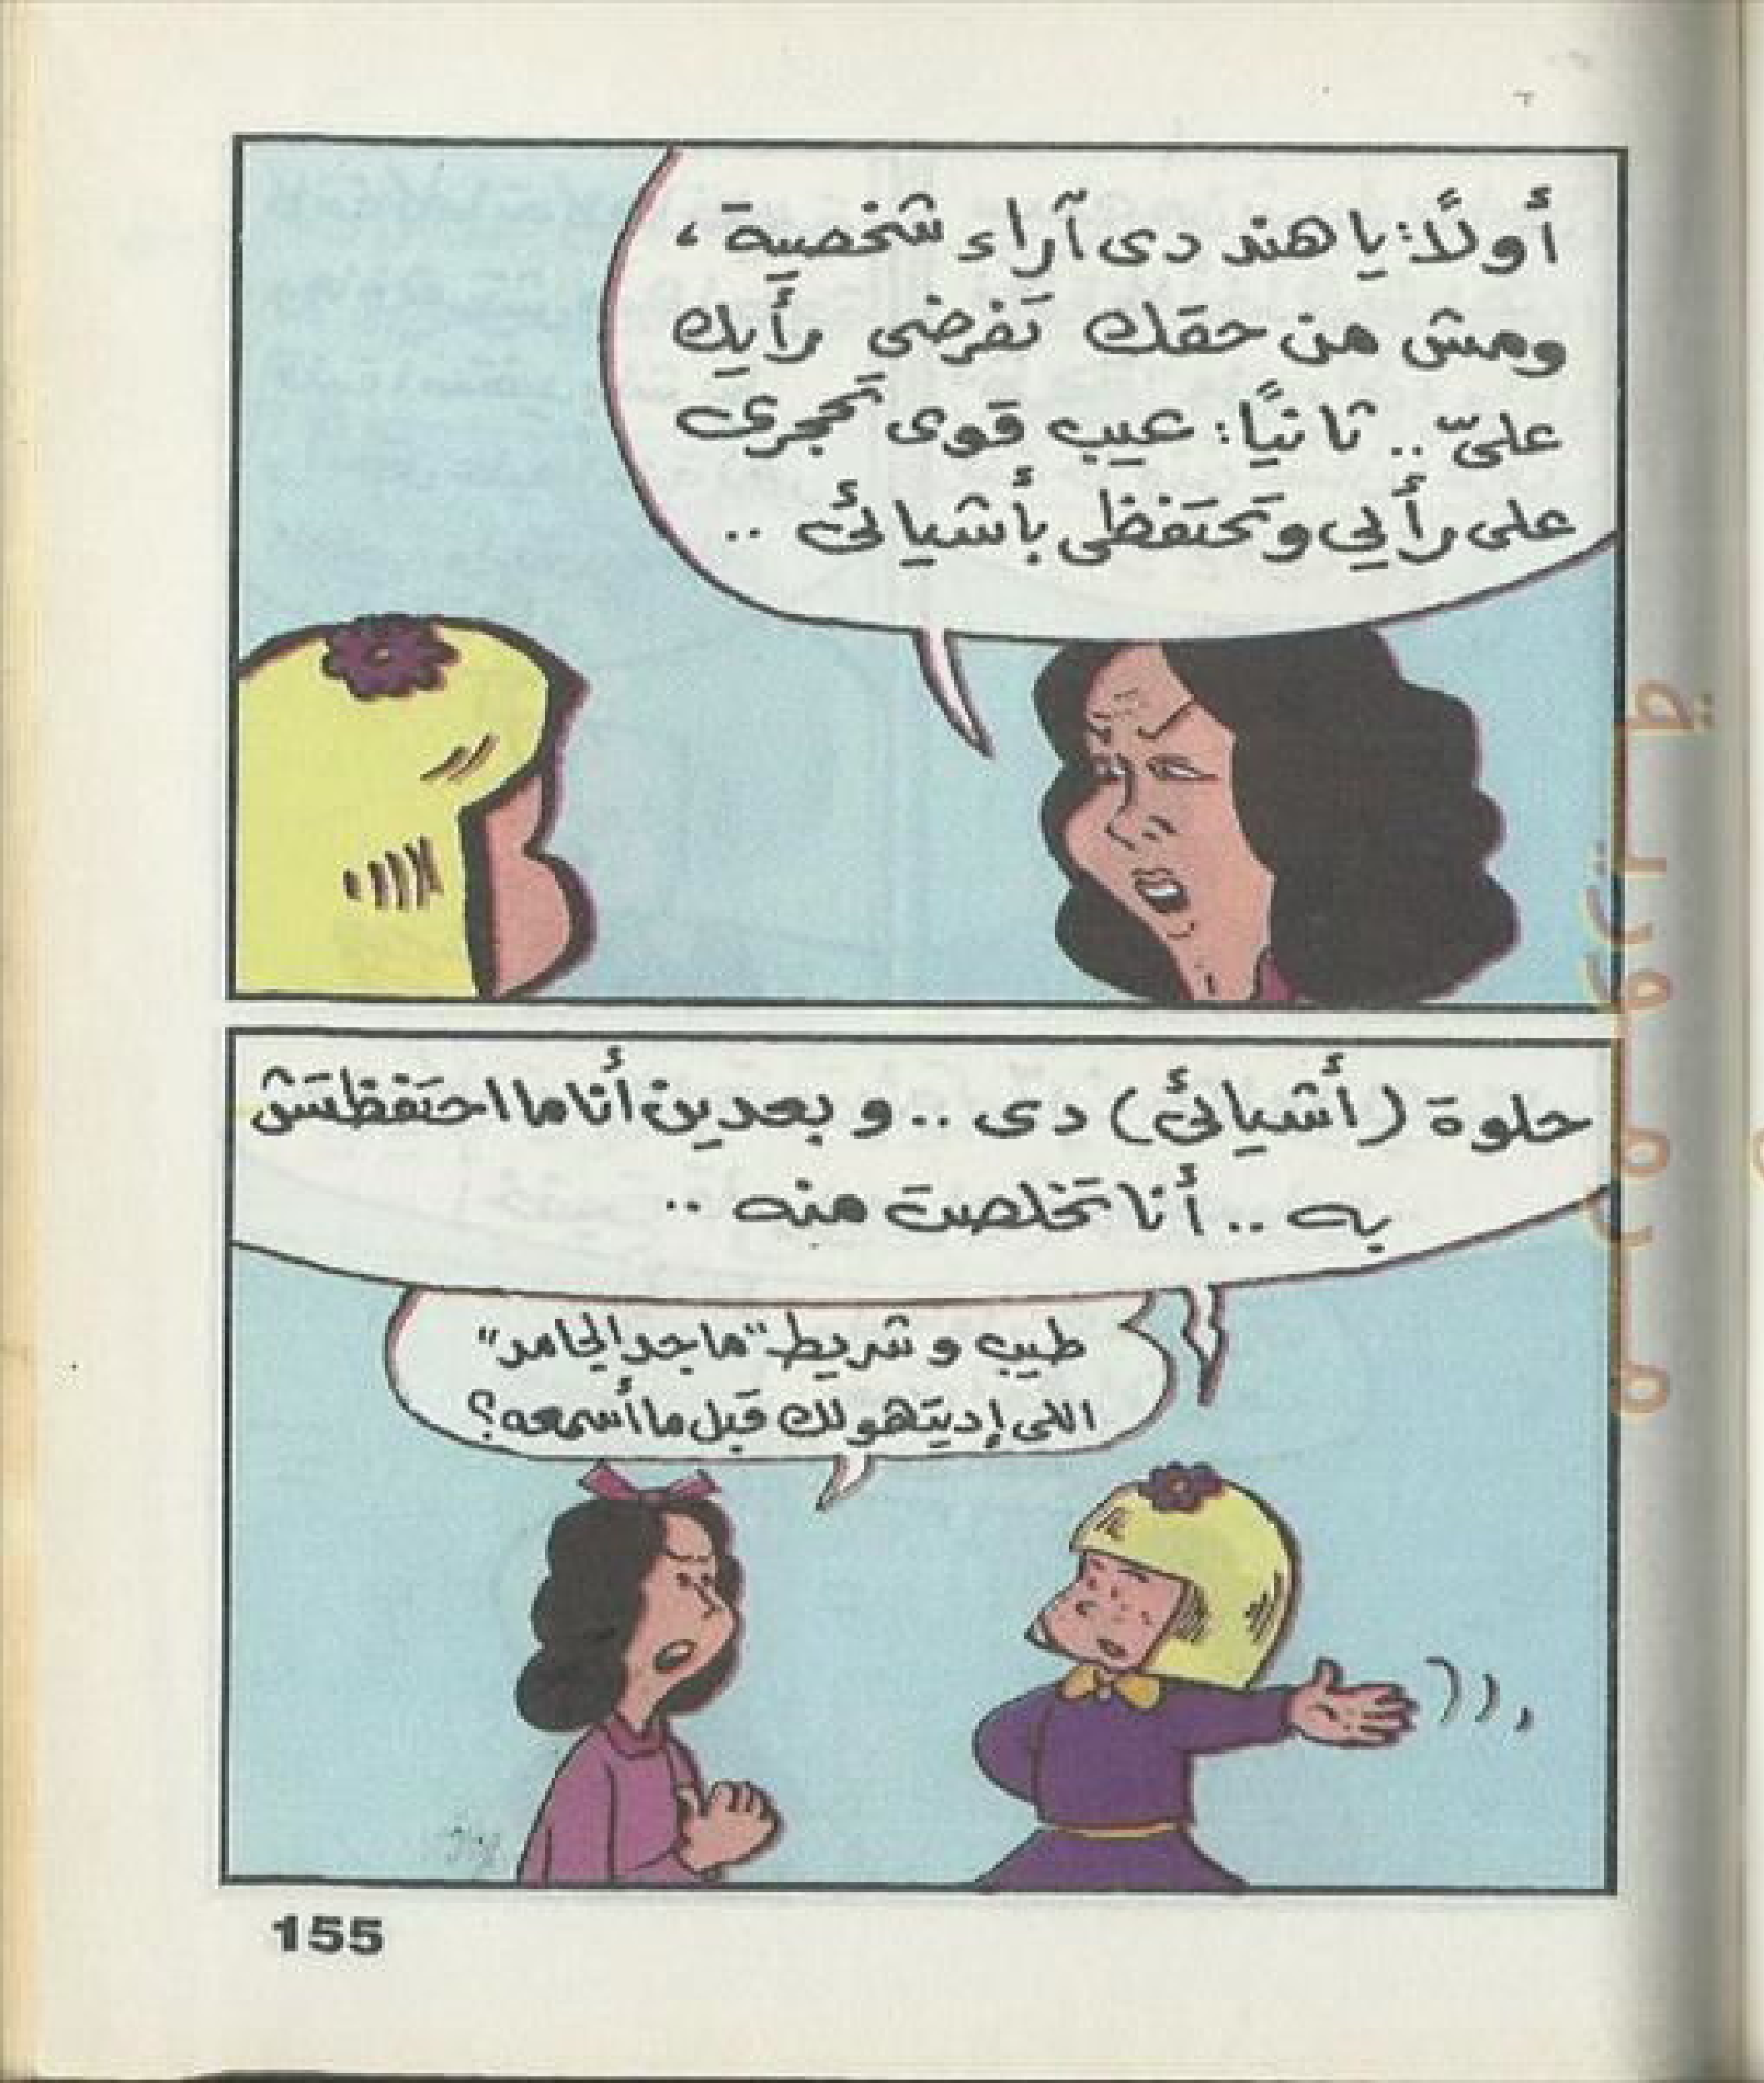 أولًا: يا هند دى آراء شخصية،
ومش من حقك تَفرضى رأيك
علىّ .. ثانيًا: عيب قوى تحجرى
على رأيي وتحتفظى بأشيائى ..
حلوة (أشيائى) دى .. وبعدين أنا ما احتفظتش
بيه .. أنا تخلصت منه ..
طيب وشريط "ماجد الحامد"
اللى إديتهولك قبل ما أسمعه؟
155